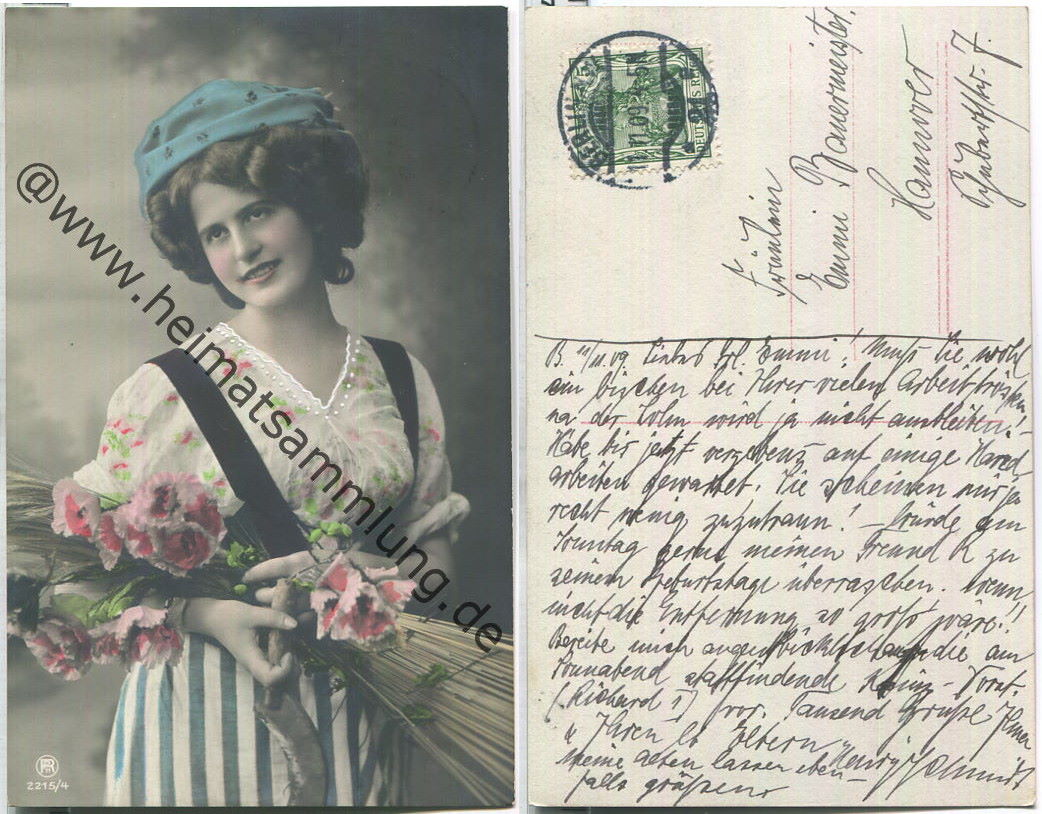 @www.heimatsammlung.de
2215/4
Fräulein
Emmi Bauermeister.
Hannover
Schubertstr. 7.
B. 11/11.09. Liebes Frl. Emmi! Muss Sie wohl
ein bischen bei Ihrer vielen Arbeit trösten,
na der Lohn wird ja nicht ausbleiben!
Habe bis jetzt vergebens auf einige Hand
arbeiten gewartet. Sie scheinen mir ja
recht wenig zuzutraun! – Würde am
Sonntag gerne meinen Freund R zu
seinem Geburtstage überraschen. Wenn
nicht die Entfernung so gross wäre!!
Bereite mich augenblicklich auf die am
Sonnabend stattfindende Vorst.
(Richard I) vor. Tausend Grüsse Ihnen
u Ihren lb Eltern Henry Schmidt
Meine alten lassen eben–
falls grüssen